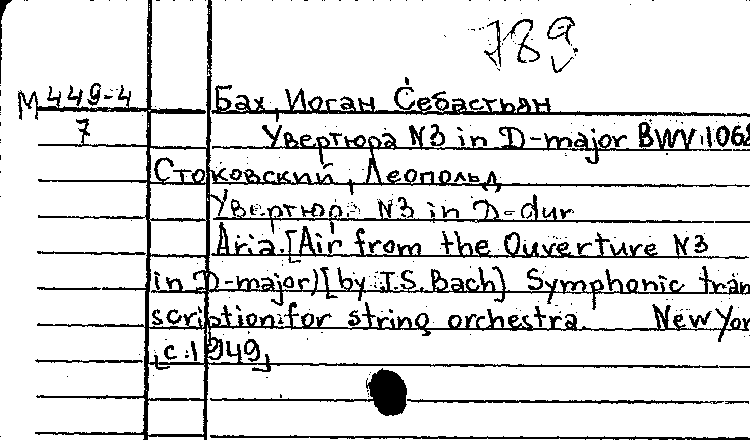 789
М 449-4
7
Бах, Иоган Себастьян
Увертюра N3 in D-major BWV.1068
Стоковский, Леопольд
Увертюра N3 in D-dur
Aria.[Air from the Ouverture N3
in D-major)[by J.S.Bach] Symphonic tran
scription.for string orchestra. New Yor
[c.1949]